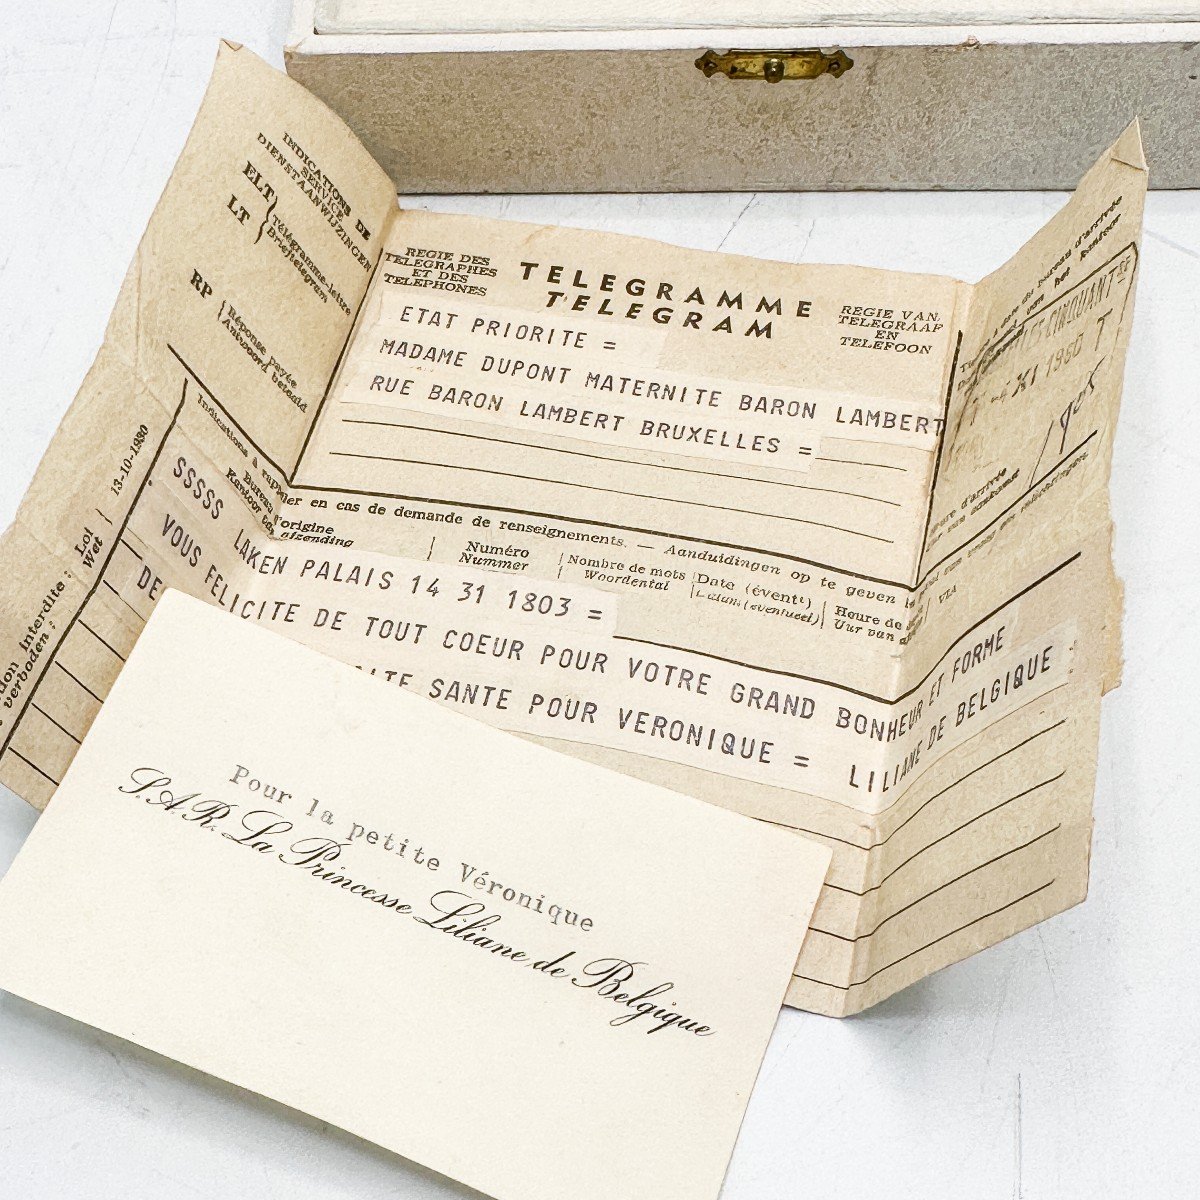 INDICATIONS DE
SERVICE
DIENSTAANWIJZINGEN
ELT
LT
Télégramme-lettre
Brieftelegram
RP
Réponse payée
Antwoord betaald
REGIE DES
TELEGRAPHES
ET DES
TELEPHONES
TELEGRAMME
TELEGRAM
REGIE VAN
TELEGRAAF
EN
TELEFOON
ETAT PRIORITE =
MADAME DUPONT MATERNITE BARON LAMBERT
RUE BARON LAMBERT BRUXELLES =
-4 XI 1960
Indications à rappeler en cas de demande de renseignements. — Aanduidingen op te geven
Bureau d'origine
Kantoor van afzending
Numéro
Nummer
Nombre de mots
Woordental
Date (événtl)
Datum (eventueel)
Heure de
Uur van
VIA
13-10-1930
Loi
Wet
interdite :
verboden :
SSSSS LAKEN PALAIS 14 31 1803 =
VOUS FELICITE DE TOUT COEUR POUR VOTRE GRAND BONHEUR ET FORME
DE
SANTE POUR VERONIQUE = LILIANE DE BELGIQUE
Pour la petite Véronique
S.A.R. La Princesse Liliane de Belgique